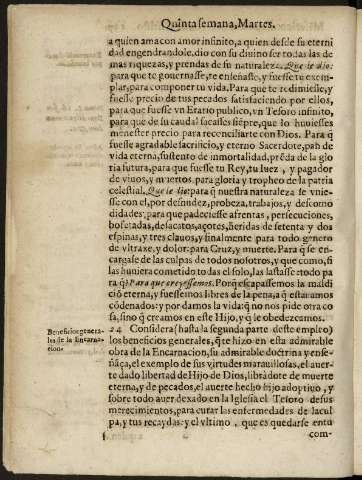 Quinta semana, Martes.
a quien ama con amor infinito, a quien desde su eterni
dad engendrandole, dio con su divino ser todas las de
mas riquezas, y prendas de su naturaleza. Que te dio:
para que te governasse, te enseñasse, y fuesse tu exem-
plar, para componer tu vida. Para que te redimiesse, y
fuesse precio de tus pecados satisfaciendo por ellos,
para que fuesse vn Erario publico, vn Tesoro infinito,
para que de su caudal sacasses siẽpre, que lo huuiesses
menester precio para reconciliarte con Dios. Para q̃
fuesse agradable sacrificio, y eterno Sacerdote, pan de
vida eterna, sustento de inmortalidad, prẽda de la glo
ria futura, para que fuesse tu Rey, tu Iuez, y pagador
de viuos, y muertos, para gloria y tropheo de la patria
celestial. Que te dio: para q̃ nuestra naturaleza se vnie-
sse con el, por desnudez, probeza, trabajos, y descomo
didades, para que padeciesse afrentas, persecuciones,
bofetadas, desacatos, açotes, heridas de setenta y dos
espinas, y tres clauos, y finalmente para todo genero
de vltraxe, y dolor: para Cruz, y muerte. Para q̃ se en-
cargasse de las culpas de todos nosotros, y que como, si
las huuiera cometido todas el solo, las lastasse todo pa
ra q̃? Para que creyessemos. Porq̃ escapassemos la maldi
ciõ eterna, y fuessemos libres de la pena, a q̃ estauamos
cõdenados: y por darnos la vida: q̃ no nos pide otra co
sa, sino q̃ creamos en este Hijo, y q̃ le obedezcamos.
Beneficios genera-
les de la Encarna-
cion.
24 Considera (hasta la segunda parte deste empleo)
los beneficios generales, q̃ te hizo en esta admirable
obra de la Encarnacion, su admirable doctrina y ense-
ñãça, el exemplo de sus virtudes marauillosas, el auer-
te dado libertad de Hijo de Dios, librãdote de muerte
eterna, y de pecados, el auerte hecho hijo adoptiuo, y
sobre todo auer dexado en la Iglesia el Tesoro de sus
merecimientos, para curar las enfermedades de la cul
pa, y tus recaydas: y el vltimo, que es quedarse entu
com-